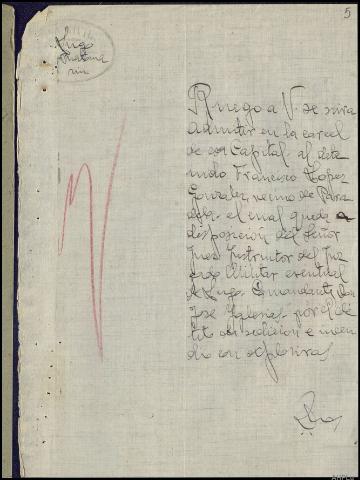 5
Lugo
Ruego a V. se sirva
admitir en la carcel
de esa Capital al dete
nido Francisco Lopez
Gonzalez, vecino de Para
dela el cual queda a
disposición del Señor
Juez Instructor del Juz
gado Militar eventual
de Lugo Comandante Don
Jose Iglesias por el de
lito de sedicion e incen
dio con explosivos